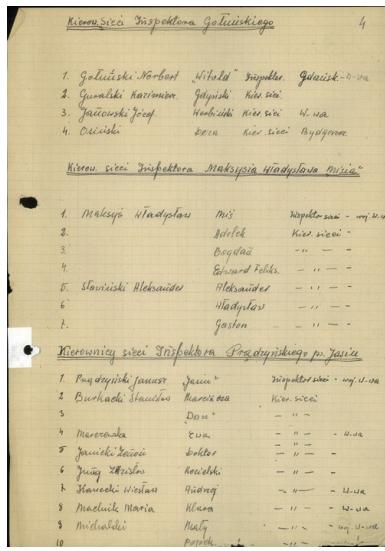 Kierow. Sieci Inspektora Gołuńskiego
4
1. Gołuński Norbert "Witold" Inspektor. Gdańsk - W-wa
2. Guralski Kazimierz Gdyński Kier. sieci
3. Janowski Józef Werbiński Kier. sieci W-wa
4. Osiński Dora Kier. sieci Bydgoszcz
Kierow. sieci Inspektora Maksysia Władysława "Misia"
1. Maksyś Władysław Miś Inspektor sieci - woj. W-wa
2. Adolek Kier. sieci -
3. Bogdan - " - -
4. Edward Feliks. - " - -
5. Sławiński Aleksander Aleksander - " - -
6 Władysław - " - -
7. Gaston - " - -
Kierownicy sieci Inspektora Prądzyńskiego ps. Janin
1. Prądzyński Janusz "Janin" Inspektor sieci - woj. W-wa
2 Burhacki Stanisław Kier. sieci
3 "Don" - " -
4 Marczewska Ewa - " - - W-wa
5 Janicki Zenon Doktor - " - -
6 Jung Zdzisław Kozielski - " - -
7 Wiesław Andrzej - " - - W-wa
8 Machnik Maria Klara - " - - W-wa
9 Michalski Mały - " - woj. W-wa
10 - " -